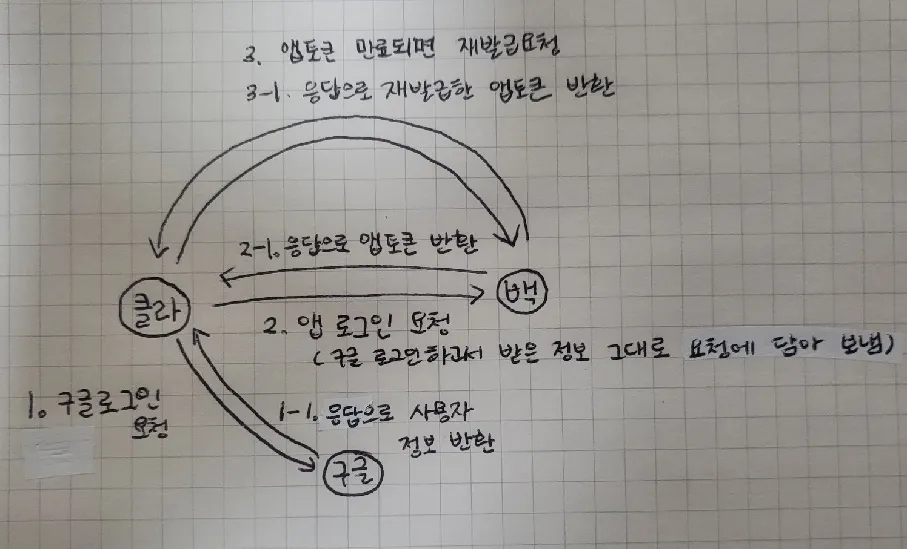 3. 앱토큰 만료되면 재발급요청
3-1. 응답으로 재발급한 앱토큰 반환
2-1. 응답으로 앱토큰 반환
클라
백
2. 앱 로그인 요청
(구글 로그인하고서 받은 정보 그대로 요청에 담아 보냄)
1. 구글로그인
요청
1-1. 응답으로 사용자
정보 반환
구글